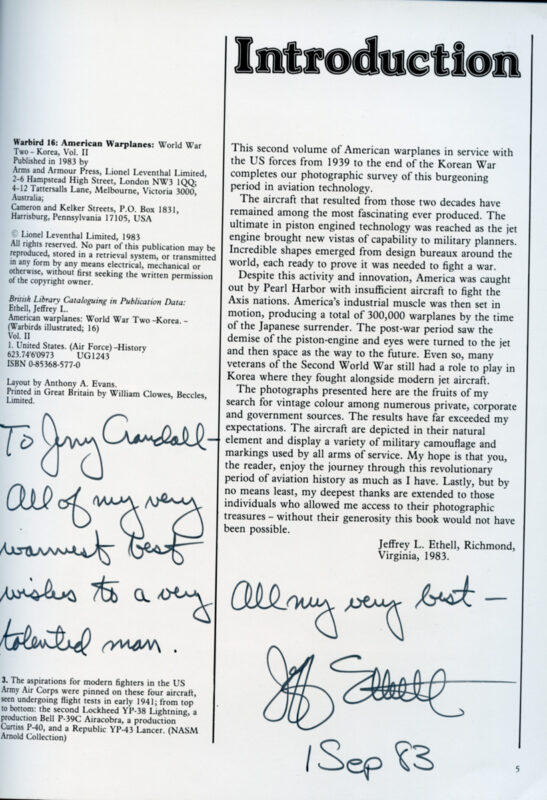 Introduction
Warbird 16: American Warplanes: World War
Two - Korea, Vol. II
Published in 1983 by
Arms and Armour Press, Lionel Leventhal Limited,
2-6 Hampstead High Street, London NW3 1QQ;
4-12 Tattersalls Lane, Melbourne, Victoria 3000,
Australia;
Cameron and Kelker Streets, P.O. Box 1831,
Harrisburg, Pennsylvania 17105, USA
© Lionel Leventhal Limited, 1983
All rights reserved. No part of this publication may be
reproduced, stored in a retrieval system, or transmitted
in any form by any means electrical, mechanical or
otherwise, without first seeking the written permission
of the copyright owner.
British Library Cataloguing in Publication Data:
Ethell, Jeffrey L.
American warplanes: World War Two -Korea. -
(Warbirds illustrated; 16)
Vol. II
1. United States. (Air Force) -History
623.74'6'0973 UG1243
ISBN 0-85368-577-0
Layout by Anthony A. Evans.
Printed in Great Britain by William Clowes, Beccles,
Limited.
To Jerry Crandall -
All of my very
warmest best
wishes to a very
talented man.
3. The aspirations for modern fighters in the US
Army Air Corps were pinned on these four aircraft,
seen undergoing flight tests in early 1941; from top
to bottom: the second Lockheed YP-38 Lightning, a
production Bell P-39C Airacobra, a production
Curtiss P-40, and a Republic YP-43 Lancer. (NASM
Arnold Collection)
This second volume of American warplanes in service with
the US forces from 1939 to the end of the Korean War
completes our photographic survey of this burgeoning
period in aviation technology.
The aircraft that resulted from those two decades have
remained among the most fascinating ever produced. The
ultimate in piston engined technology was reached as the jet
engine brought new vistas of capability to military planners.
Incredible shapes emerged from design bureaux around the
world, each ready to prove it was needed to fight a war.
Despite this activity and innovation, America was caught
out by Pearl Harbor with insufficient aircraft to fight the
Axis nations. America's industrial muscle was then set in
motion, producing a total of 300,000 warplanes by the time
of the Japanese surrender. The post-war period saw the
demise of the piston-engine and eyes were turned to the jet
and then space as the way to the future. Even so, many
veterans of the Second World War still had a role to play in
Korea where they fought alongside modern jet aircraft.
The photographs presented here are the fruits of my
search for vintage colour among numerous private, corporate
and government sources. The results have far exceeded my
expectations. The aircraft are depicted in their natural
element and display a variety of military camouflage and
markings used by all arms of service. My hope is that you,
the reader, enjoy the journey through this revolutionary
period of aviation history as much as I have. Lastly, but by
no means least, my deepest thanks are extended to those
individuals who allowed me access to their photographic
treasures – without their generosity this book would not have
been possible.
Jeffrey L. Ethell, Richmond,
Virginia, 1983.
All my very best —
Jeff Ethell
1 Sep 83
5